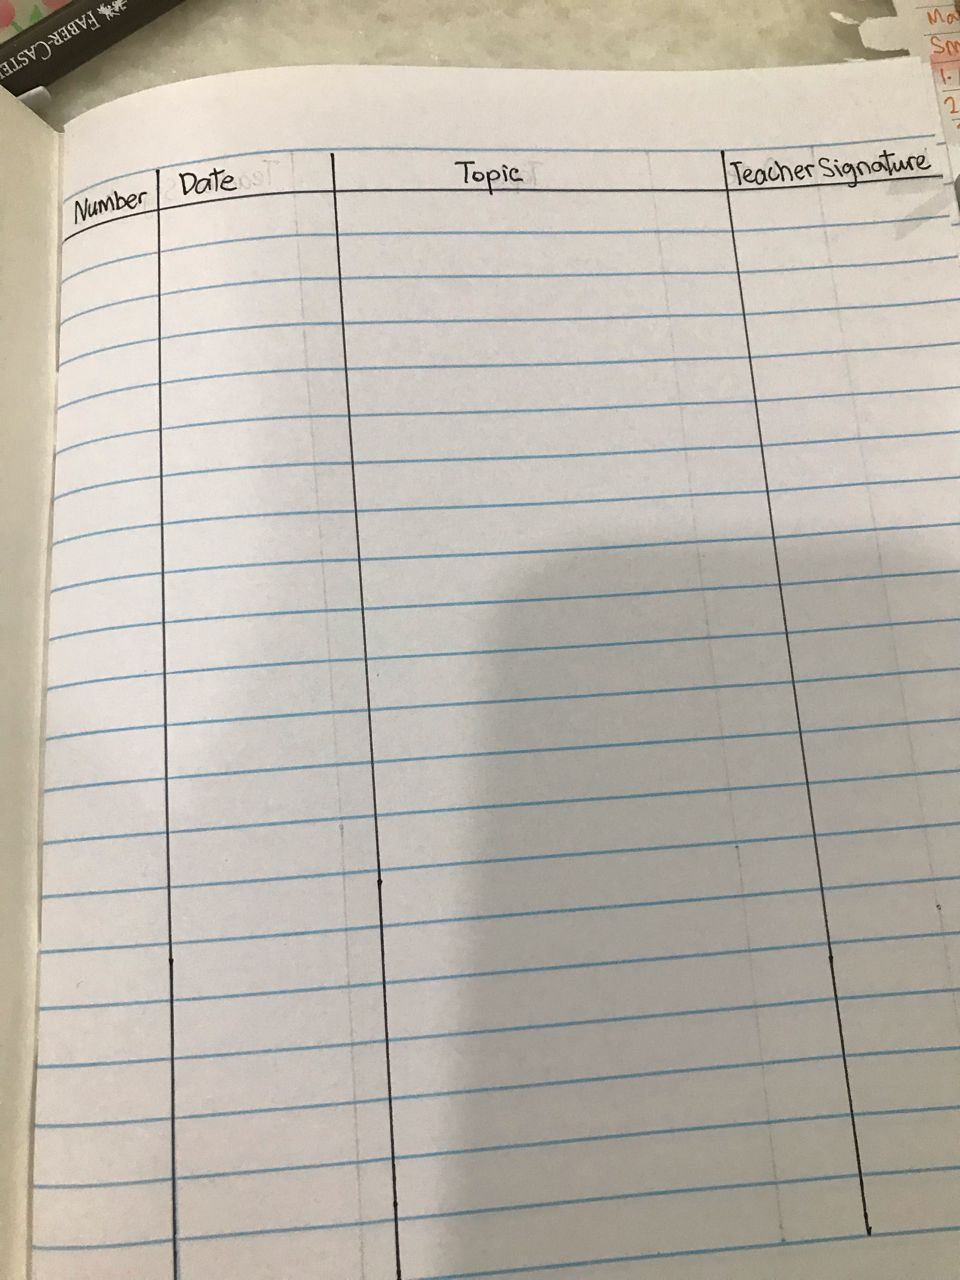 FABER-CASTE
Ma
Sm
1.
2
Number Date Topic Teacher Signature